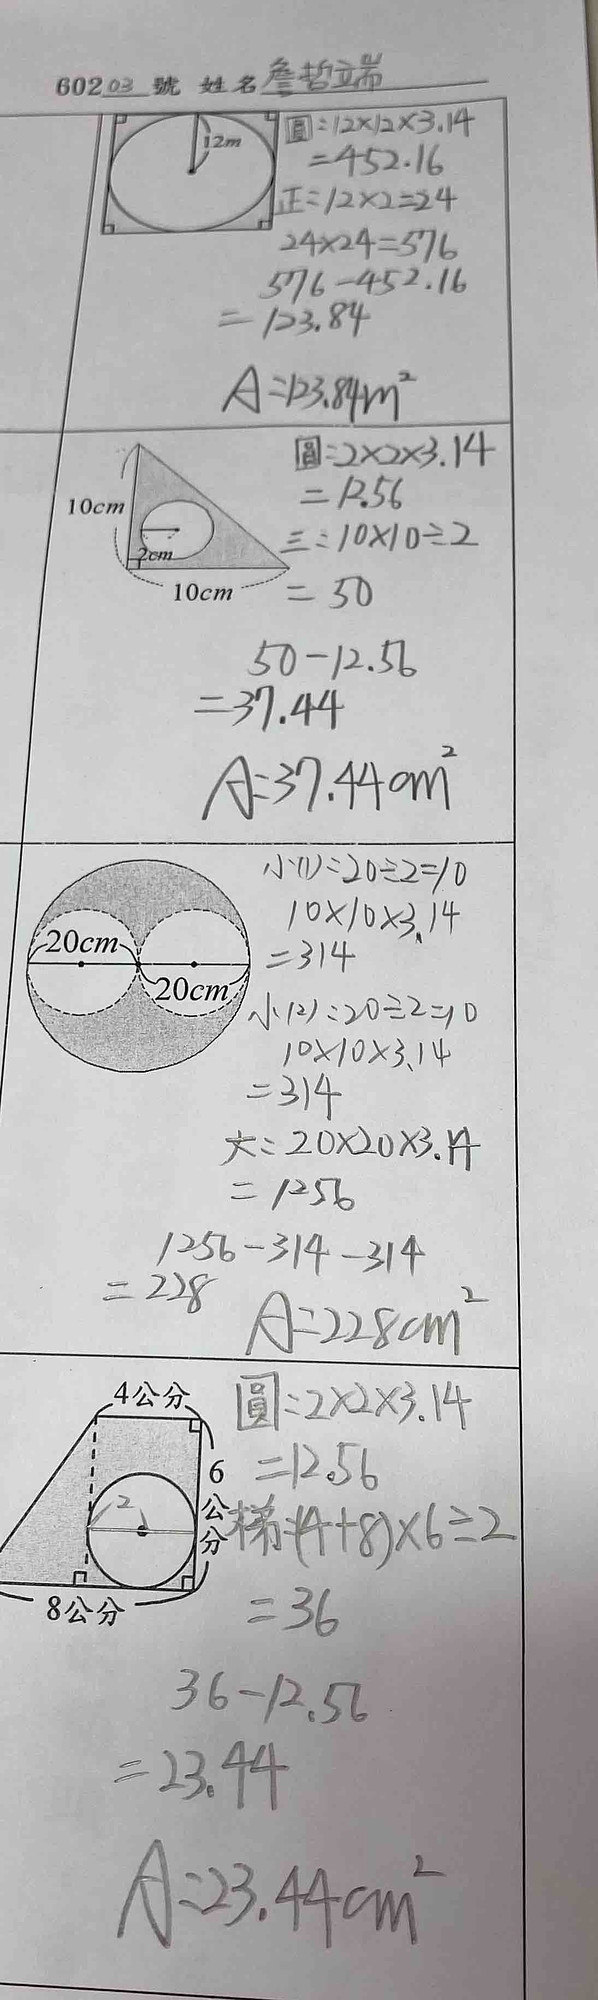 602 03 號 姓名 詹哲端
12m
圓:12×12×3.14
=452.16
正:12×2=24
24×24=576
576-452.16
=123.84
A:123.84m²
10cm
2cm
10cm
圓:2×2×3.14
=12.56
三:10×10÷2
=50
50-12.56
=37.44
A:37.44cm²
20cm
20cm
小(1):20÷2=10
10×10×3.14
=314
小(2):20÷2=10
10×10×3.14
=314
大:20×20×3.14
=1256
1256-314-314
=228
A:228cm²
4公分
6公分
2
8公分
圓:2×2×3.14
=12.56
梯:(4+8)×6÷2
=36
36-12.56
=23.44
A:23.44cm²